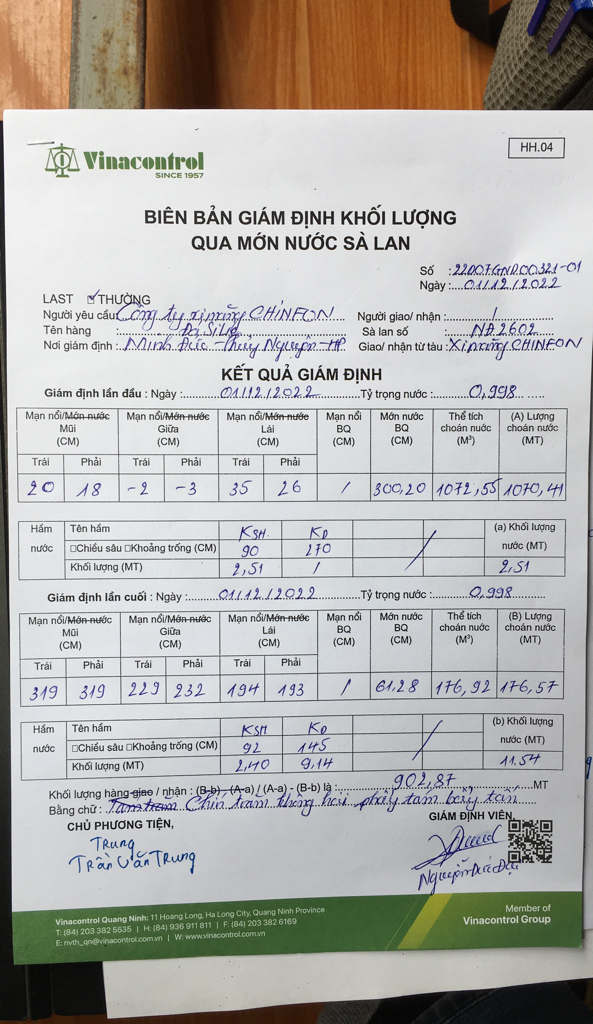 HH.04
Vinacontrol
SINCE 1957
BIÊN BẢN GIÁM ĐỊNH KHỐI LƯỢNG
QUA MỚN NƯỚC SÀ LAN
Số : 22D07GND00321-01
Ngày : 01/12/2022
LAST ☑ THƯỜNG
Người yêu cầu: Công ty xi măng CHINFON Người giao/ nhận : /
Tên hàng : Đá Silic Sà lan số : NĐ2602
Nơi giám định : Minh Đức - Thủy Nguyên - HP Giao/ nhận từ tàu : Xi măng CHINFON
KẾT QUẢ GIÁM ĐỊNH
Giám định lần đầu : Ngày : 01/12/2022 Tỷ trọng nước : 0,998
Mạn nổi/Mớn nước Mũi (CM) Mạn nổi/Mớn nước Giữa (CM) Mạn nổi/Mớn nước Lái (CM) Mạn nổi BQ (CM) Mớn nước BQ (CM) Thể tích choán nước (M³) (A) Lượng choán nước (MT)
Trái Phải Trái Phải Trái Phải
20 18 -2 -3 35 26 / 300,20 1072,55 1070,41
Hầm nước Tên hầm KSH. KĐ (a) Khối lượng nước (MT)
☐Chiều sâu ☐Khoảng trống (CM) 90 270
Khối lượng (MT) 2,51 / 2,51
Giám định lần cuối : Ngày : 01/12/2022 Tỷ trọng nước : 0,998
Mạn nổi/Mớn nước Mũi (CM) Mạn nổi/Mớn nước Giữa (CM) Mạn nổi/Mớn nước Lái (CM) Mạn nổi BQ (CM) Mớn nước BQ (CM) Thể tích choán nước (M³) (B) Lượng choán nước (MT)
Trái Phải Trái Phải Trái Phải
319 319 229 232 194 193 / 61,28 176,92 176,57
Hầm nước Tên hầm KSH KĐ (b) Khối lượng nước (MT)
☐Chiều sâu ☐Khoảng trống (CM) 92 145
Khối lượng (MT) 2,40 9,14 11.54
Khối lượng hàng giao / nhận : (B-b) - (A-a) / (A-a) - (B-b) là : 902,87 MT
Bằng chữ : Chín trăm không hai phẩy tám bảy tấn
CHỦ PHƯƠNG TIỆN, GIÁM ĐỊNH VIÊN,
Trung
Trần Văn Trung
Nguyễn Đức
Vinacontrol Quang Ninh: 11 Hoang Long, Ha Long City, Quang Ninh Province
T: (84) 203 382 5535 | H: (84) 936 911 811 | F: (84) 203 382 6169
E: nvth_qn@vinacontrol.com.vn | W: www.vinacontrol.com.vn
Member of
Vinacontrol Group